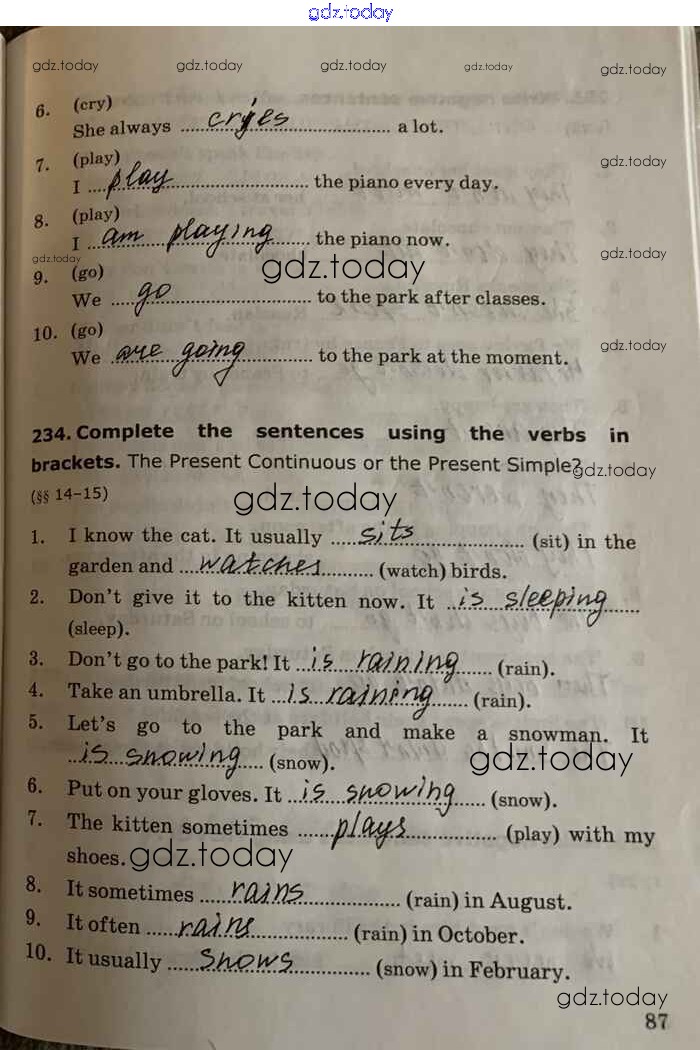 gdz.today
gdz.today gdz.today gdz.today gdz.today
6. (cry)
She always cries a lot.
7. (play) gdz.today
I play the piano every day.
8. (play)
I am playing the piano now.
gdz.today gdz.today gdz.today
9. (go)
We go to the park after classes.
10. (go) gdz.today
We are going to the park at the moment.
234. Complete the sentences using the verbs in
brackets. The Present Continuous or the Present Simple?
gdz.today
(§§ 14-15) gdz.today
1. I know the cat. It usually sits (sit) in the
garden and watches (watch) birds.
2. Don't give it to the kitten now. It is sleeping
(sleep).
3. Don't go to the park! It is raining (rain).
4. Take an umbrella. It is raining (rain).
5. Let's go to the park and make a snowman. It
is snowing (snow). gdz.today
6. Put on your gloves. It is snowing (snow).
7. The kitten sometimes plays (play) with my
shoes. gdz.today
8. It sometimes rains (rain) in August.
9. It often rains (rain) in October.
10. It usually snows (snow) in February.
gdz.today
87